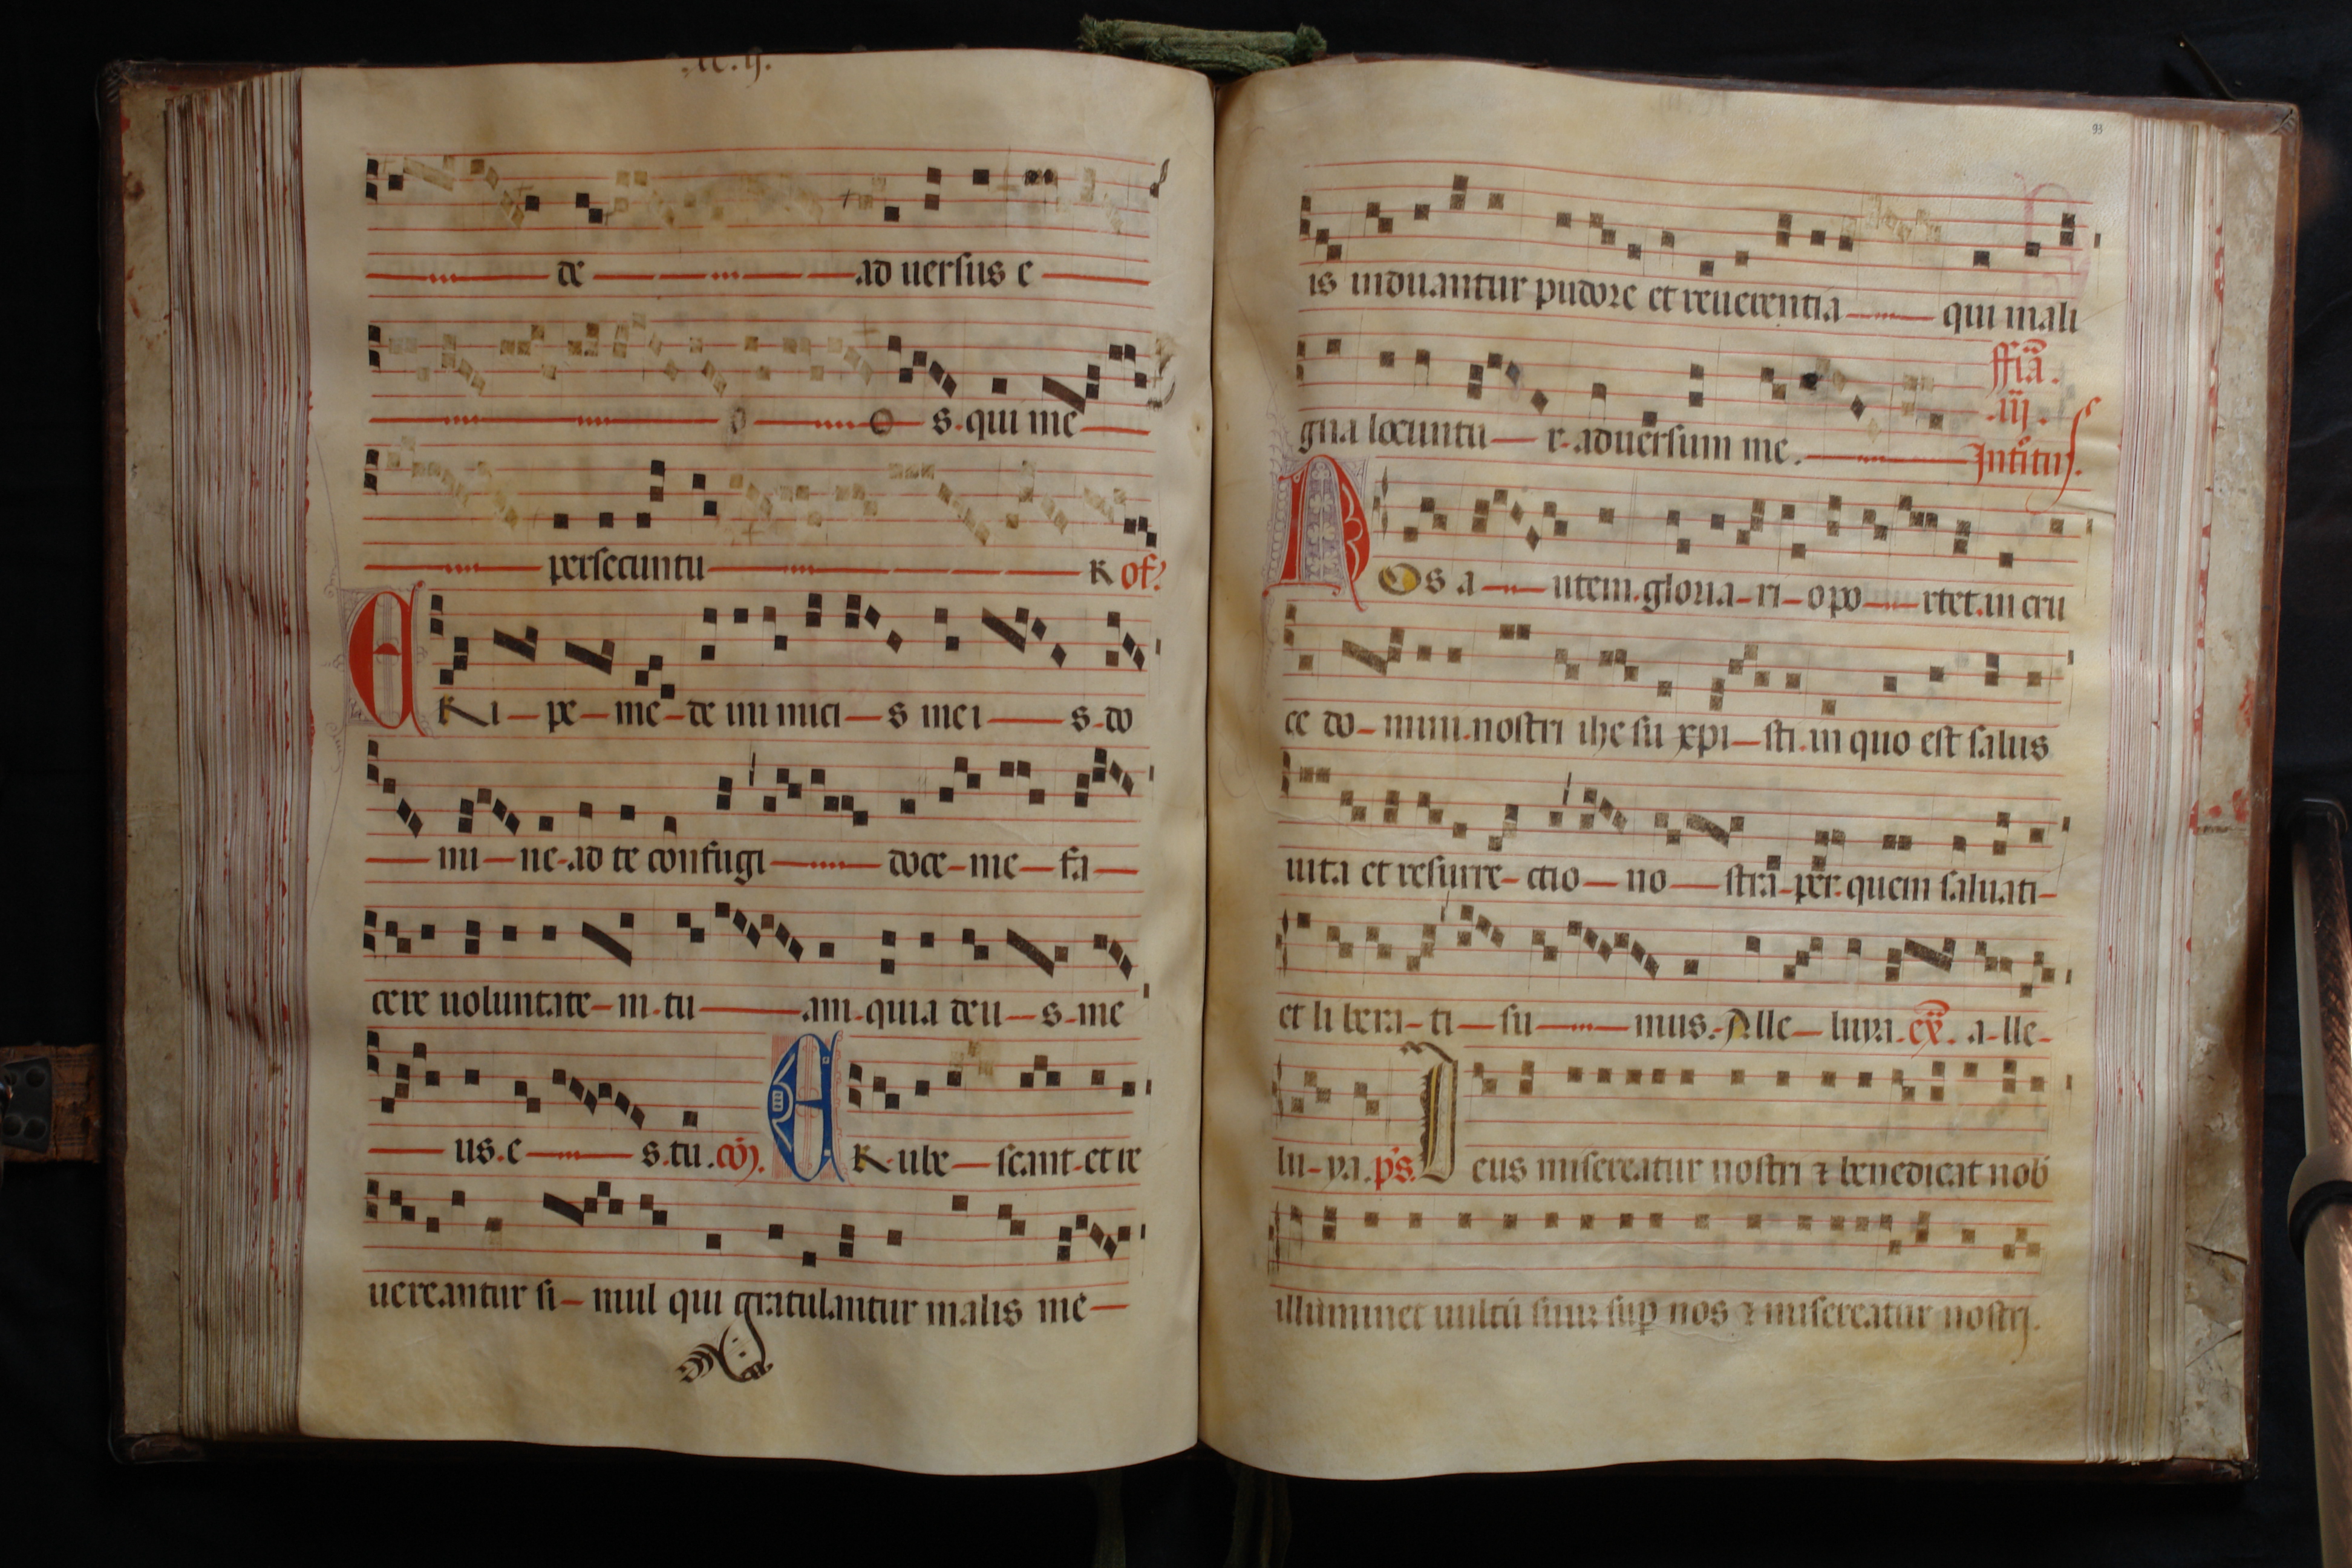 de ad uersus e
o o s. qui me
persecuntu R of?
ERi pe me de ini mici s mei s. do
mi ne. ad te confugi doce me fa
cere uoluntate m. tu am. quia deu s. me
us. e s. tu. cō). ERube scant. et re
uereantur si mul qui gratulantur malis me
93
is induantur pudore et reuerentia qui mali
gna locuntu r. aduersum me.
ffia.
.iij.
Introitus.
NOs a utem. gloria ri opo rtet. in cru
ce do mini. nostri ihe su xpi sti. in quo est salus
uita et resurre ctio no stra. per. quem saluati
et li bera ti su mus. Alle luya. ex. a lle
lu ya. ps. Deus misereatur nostri ⁊ benedicat nob
illuminet uultū suuz sup nos ⁊ misereatur nostrj.